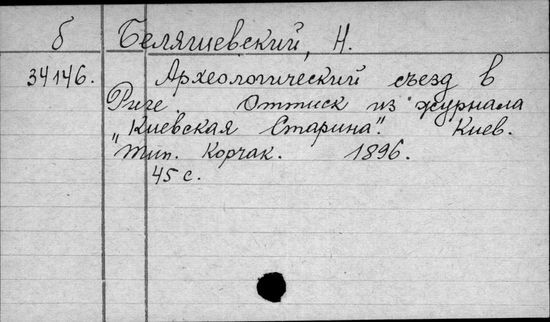 б Беляшевский, Н.
34146. Археологический съезд в
Риге. Оттиск из журнала
„Киевская Старина". Киев.
Тип. Корчак. 1896.
45 с.